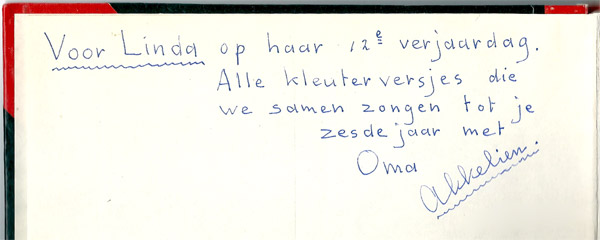 Voor Linda op haar 12e verjaardag.
Alle kleuterversjes die
we samen zongen tot je
zesde jaar met
Oma
Akkelien.